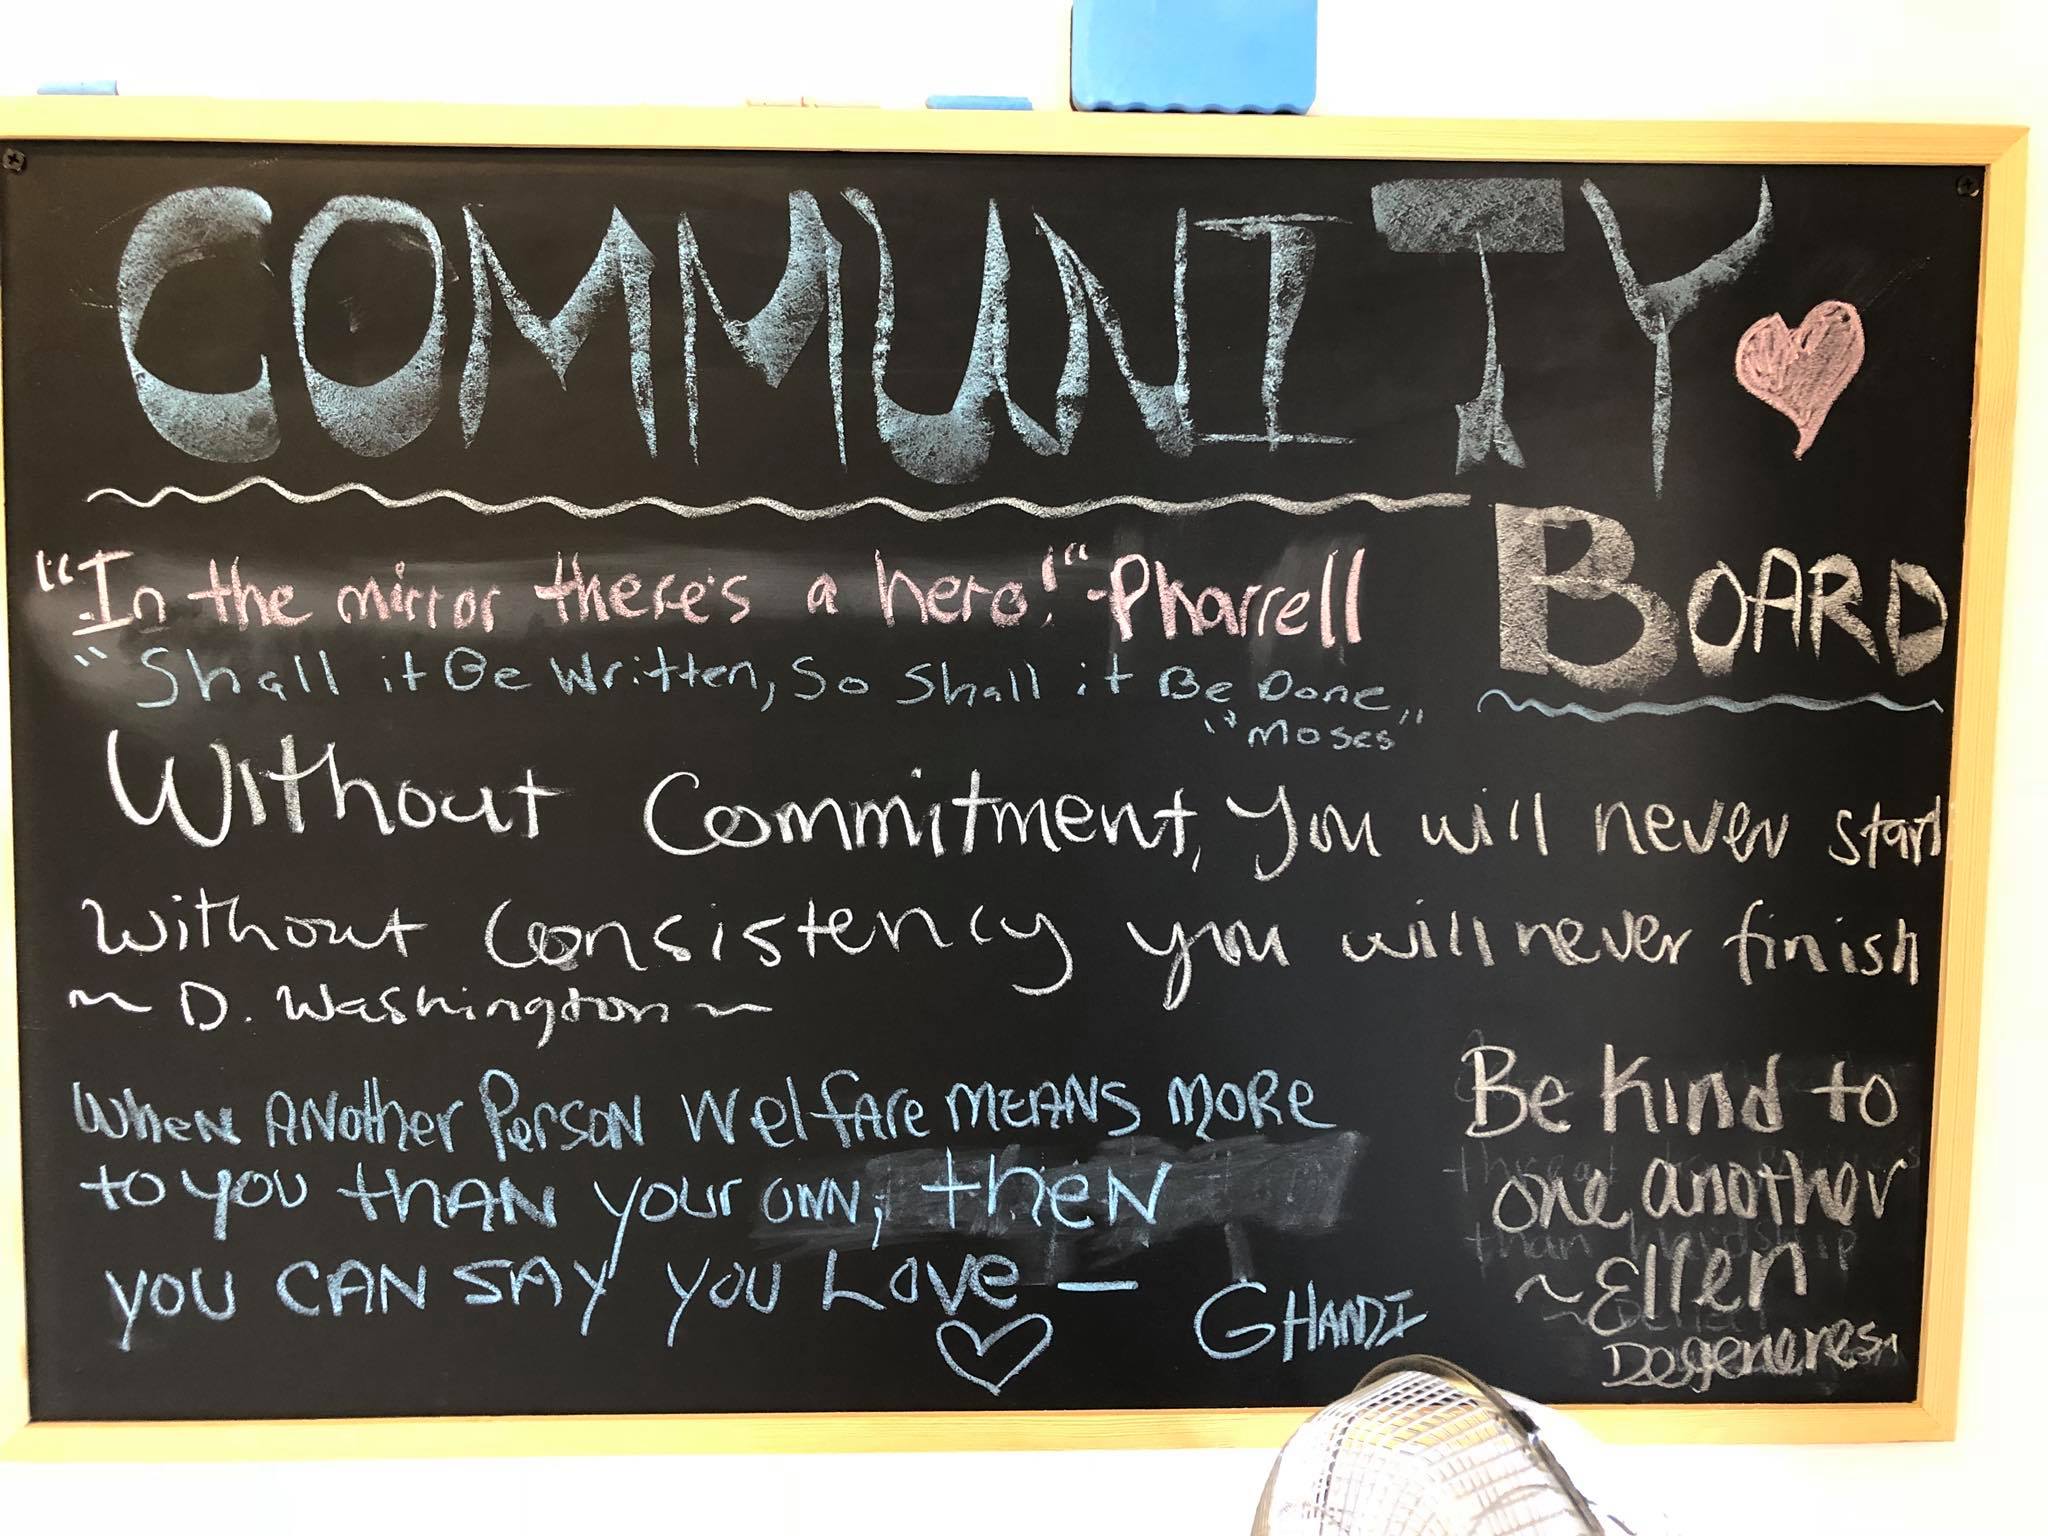 COMMUNITY
BOARD
"In the mirror there's a hero!" - Pharrell
"Shall it Be Written, So Shall it Be Done"
"Moses"
Without Commitment, you will never start
without consistency you will never finish
~ D. Washington ~
When Another Person Welfare MEANS MORE
to you thAN your own, then
you CAN SAY you Love —
GHANDI
Be Kind to
one another
~ Ellen
Degeneres